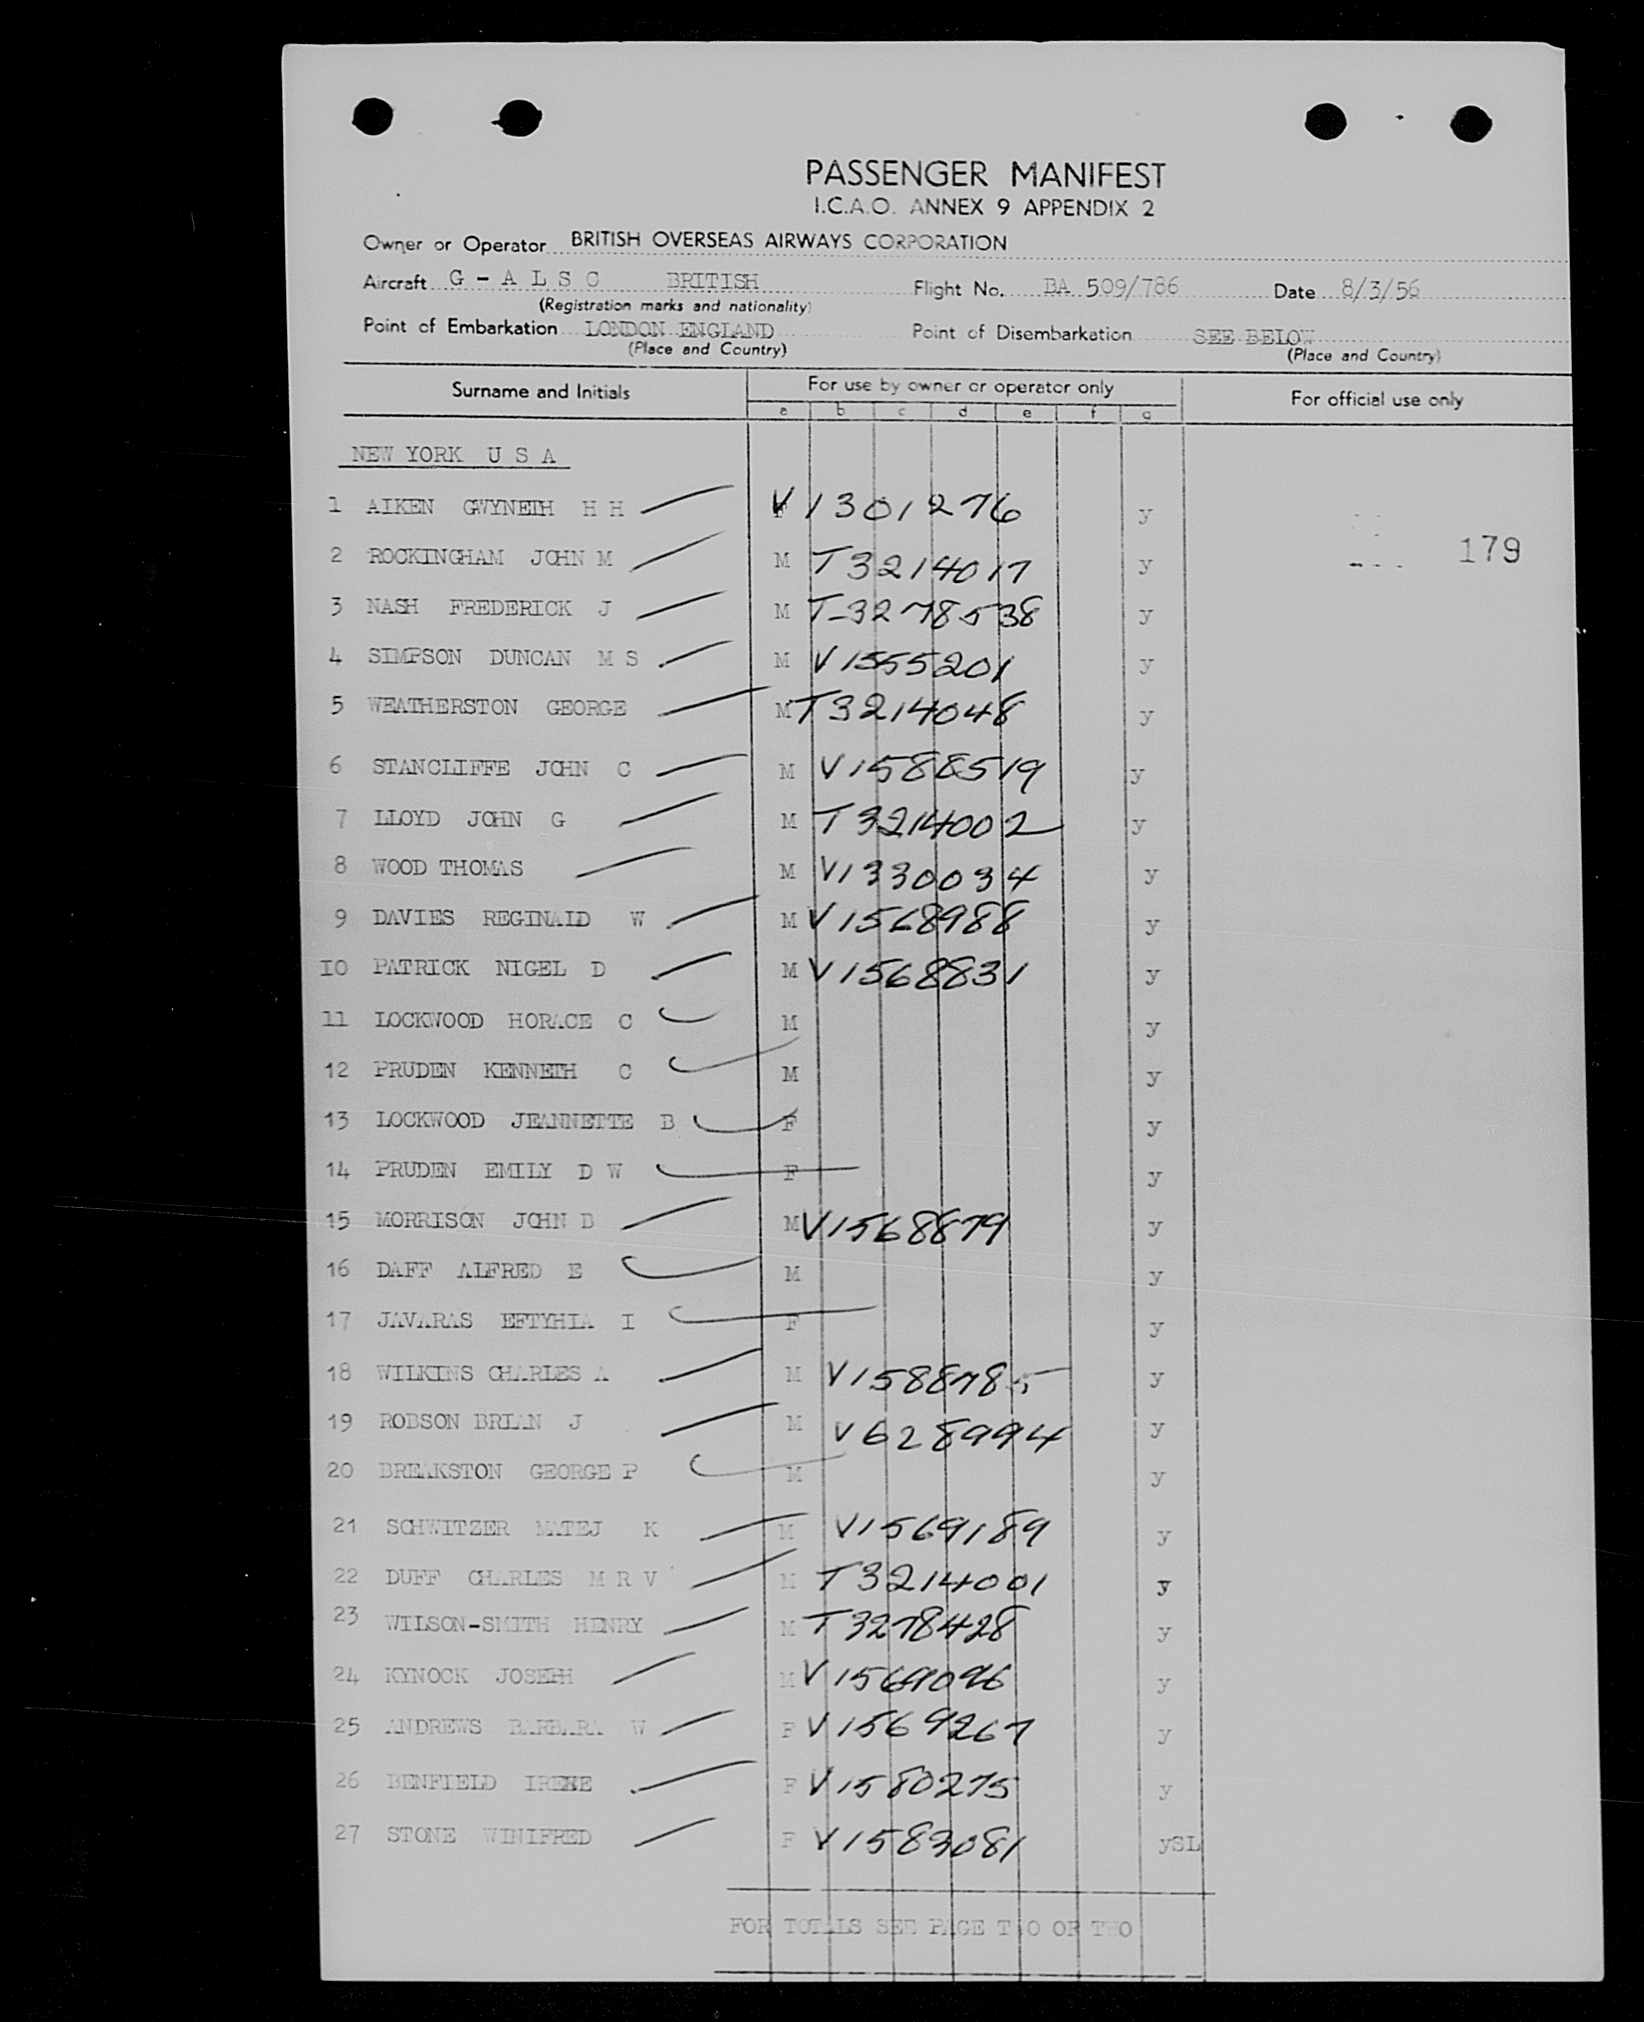 PASSENGER MANIFEST
I.C.A.O. ANNEX 9 APPENDIX 2
Owner or Operator BRITISH OVERSEAS AIRWAYS CORPORATION
Aircraft G - A L S C BRITISH Flight No. BA 509/786 Date 8/3/56
(Registration marks and nationality)
Point of Embarkation LONDON ENGLAND Point of Disembarkation SEE BELOW
(Place and Country) (Place and Country)
Surname and Initials For use by owner or operator only For official use only
a b c d e f g
NEW YORK U S A
1 AIKEN GWYNETH H H V1301276 y
179
2 ROCKINGHAM JOHN M M T3214017 y
3 NASH FREDERICK J M T-3278538 y
4 SIMPSON DUNCAN M S M V1555201 y
5 WEATHERSTON GEORGE M T3214048 y
6 STANCLIFFE JOHN C M V1588519 y
7 LLOYD JOHN G M T3214002 y
8 WOOD THOMAS M V1330034 y
9 DAVIES REGINALD W M V1568988 y
IO PATRICK NIGEL D M V1568831 y
11 LOCKWOOD HORACE C M y
12 PRUDEN KENNETH C M y
13 LOCKWOOD JEANNETTE B F y
14 PRUDEN EMILY D W F y
15 MORRISON JOHN B M V1568879 y
16 DAFF ALFRED E M y
17 JAVARAS EFTYHIA I F y
18 WILKINS CHARLES A M V1588785 y
19 ROBSON BRIAN J M V628994 y
20 BREAKSTON GEORGE P M y
21 SCHWITZER MATEJ K M V1569189 y
22 DUFF CHARLES M R V M T3214001 y
23 WILSON-SMITH HENRY M T3278428 y
24 KYNOCK JOSEPH M V1569096 y
25 ANDREWS BARBARA W F V1569267 y
26 BENFIELD IRENE F V1580275 y
27 STONE WINIFRED F V1583081 ySL
FOR TOTALS SEE PAGE TWO OF TWO